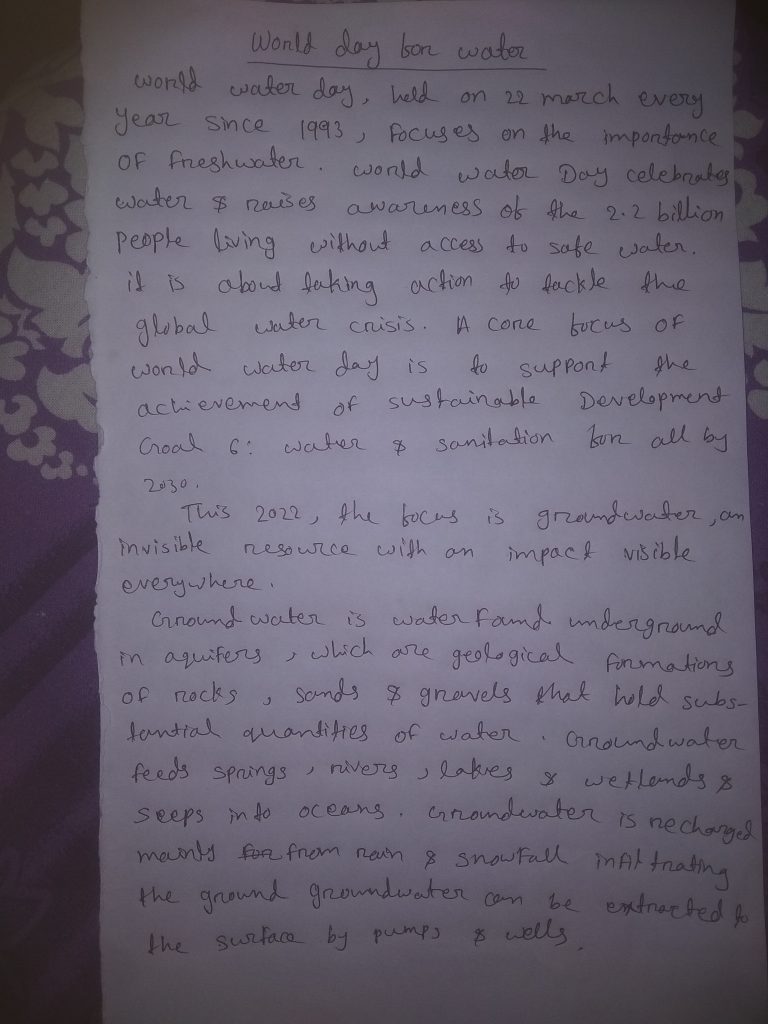 World day for water
world water day, held on 22 march every
year since 1993, focuses on the importance
of freshwater. world water Day celebrates
water & raises awareness of the 2.2 billion
people living without access to safe water.
it is about taking action to tackle the
global water crisis. A core focus of
world water day is to support the
achievement of sustainable Development
Goal 6: water & sanitation for all by
2030.
This 2022, the focus is groundwater, an
invisible resource with an impact visible
everywhere.
Groundwater is water found underground
in aquifers, which are geological formations
of rocks, sands & gravels that hold subs-
tantial quantities of water. Groundwater
feeds springs, rivers, lakes & wetlands &
seeps into oceans. Groundwater is recharged
mainly for from rain & snowfall infiltrating
the ground groundwater can be extracted to
the surface by pumps & wells.